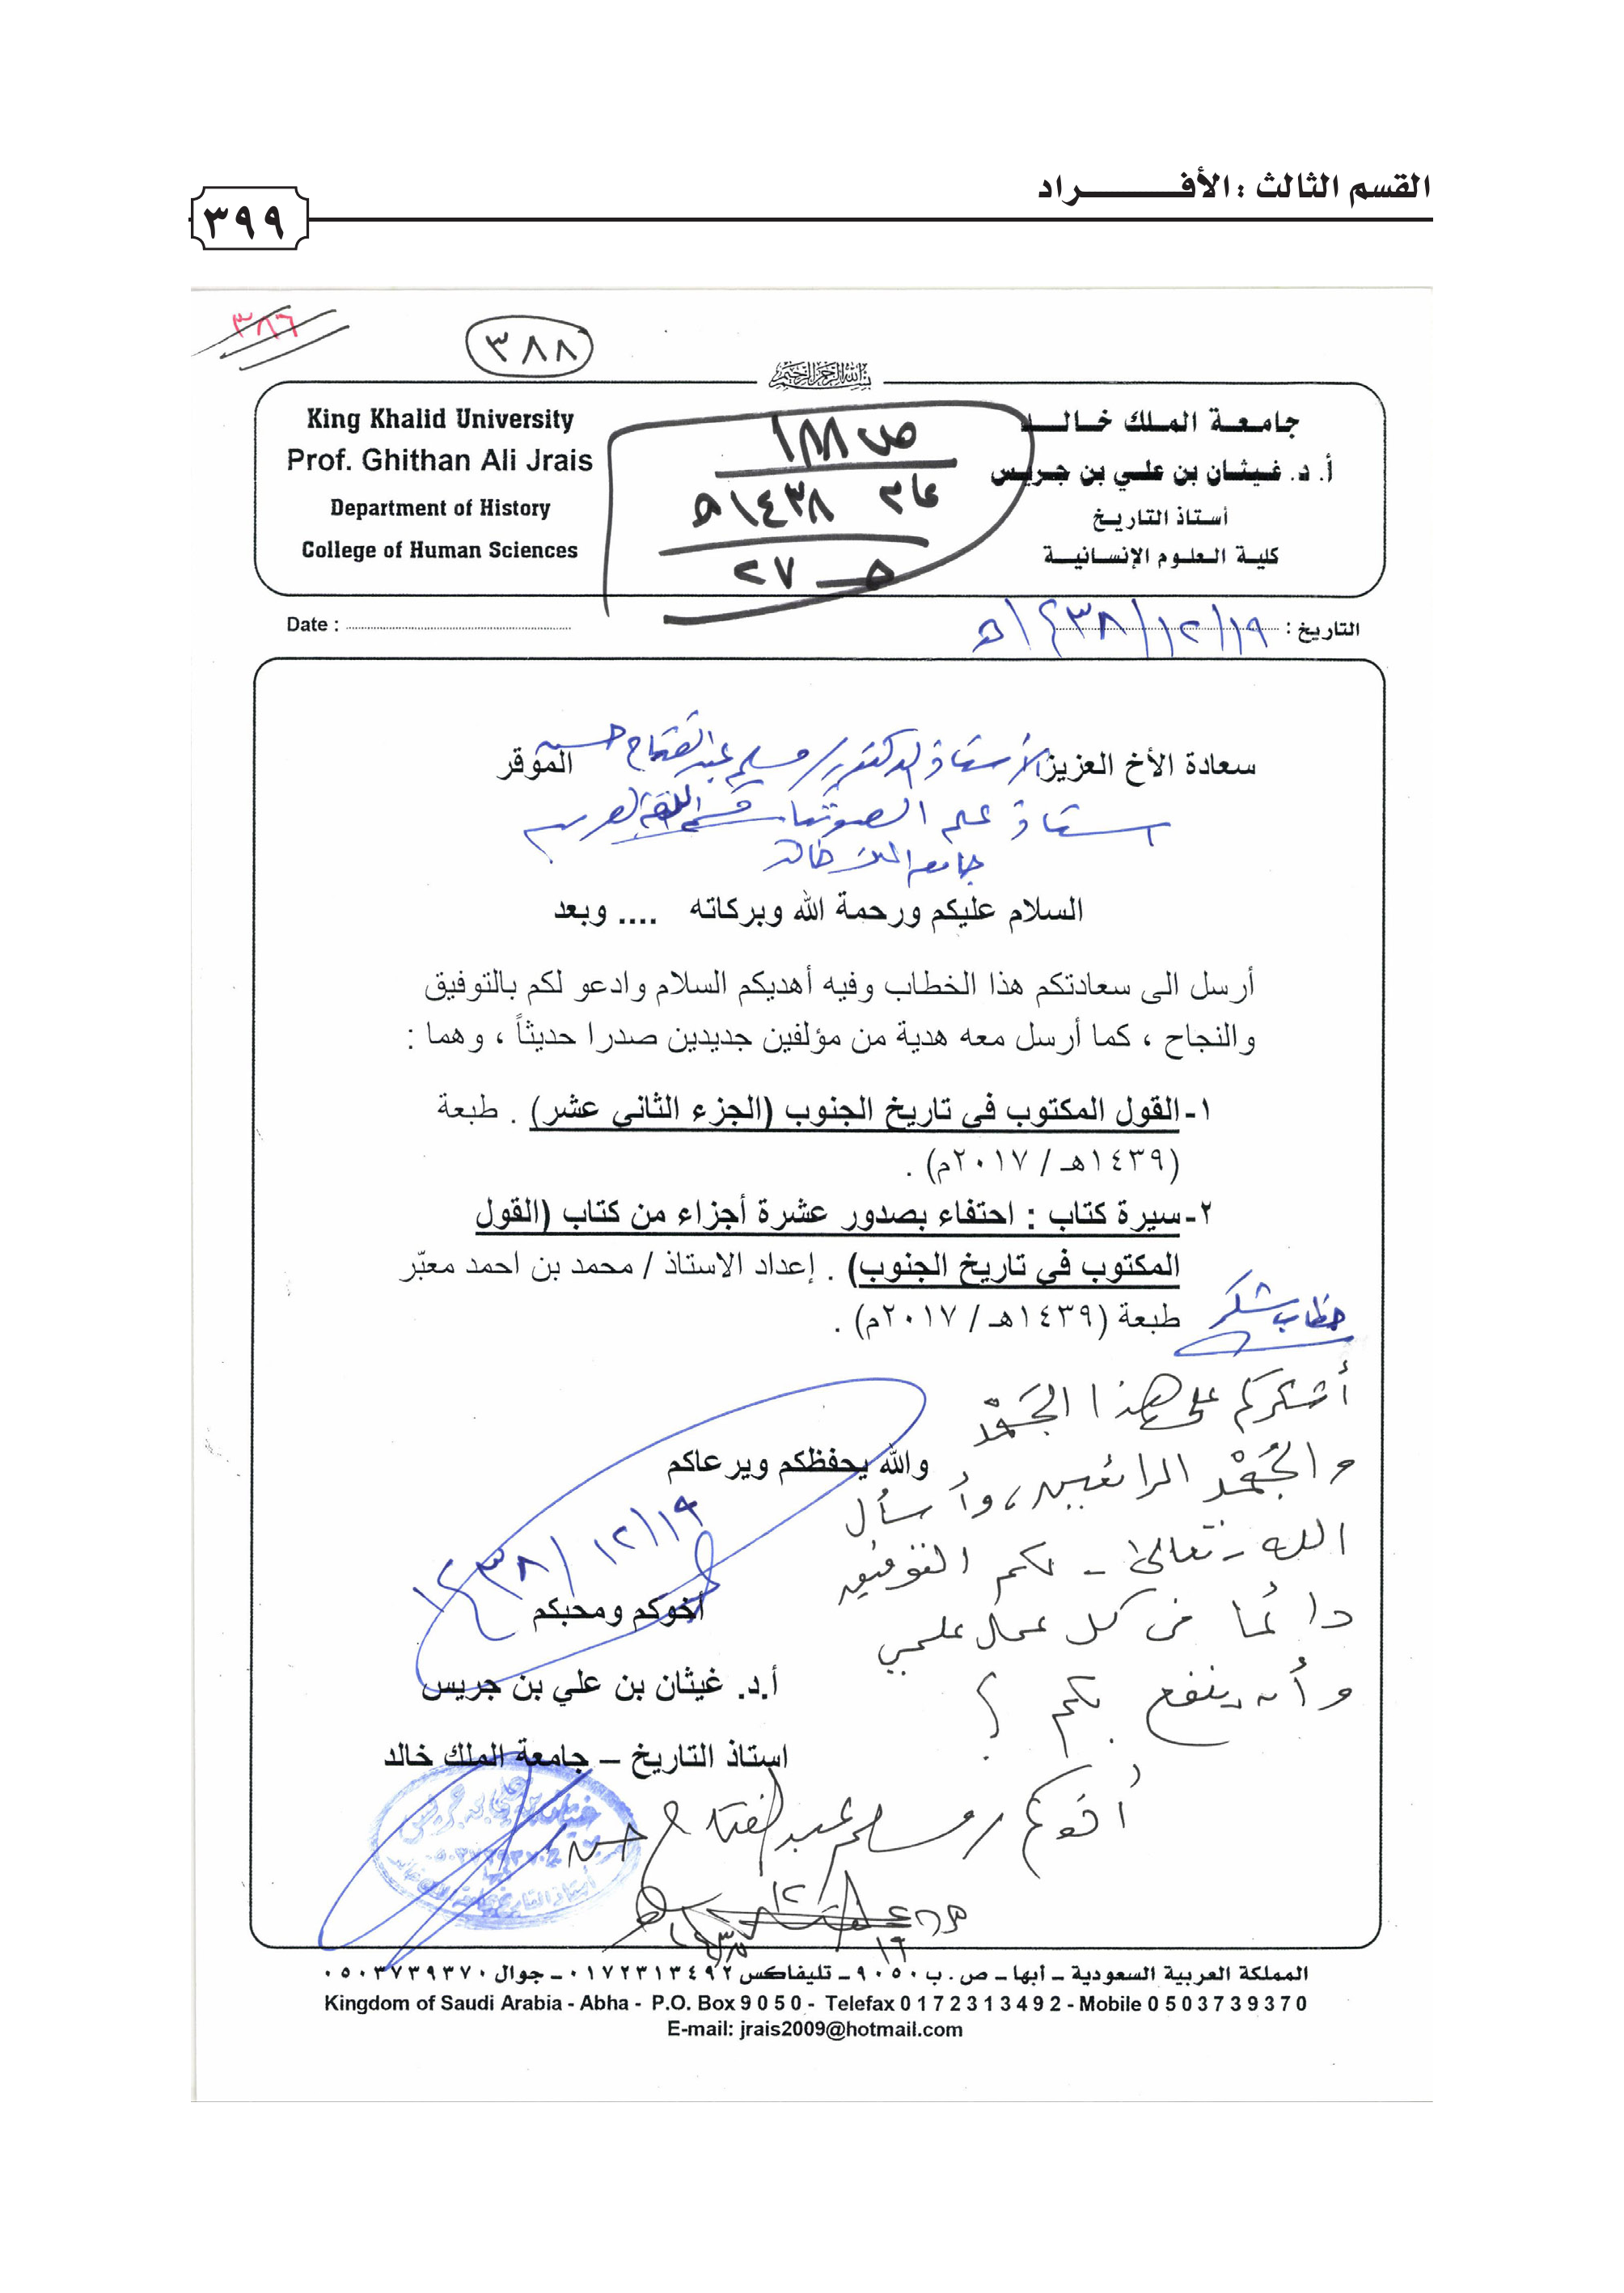 القسم الثالث : الأفــــراد
٣٩٩
٣٨٦
٣٨٨
بسم الله الرحمن الرحيم
جامعة الملك خالد
أ. د. غيثان بن علي بن جريس
أستاذ التاريخ
كلية العلوم الإنسانية
King Khalid University
Prof. Ghithan Ali Jrais
Department of History
College of Human Sciences
ص ١٨٨
عام ١٤٣٨هـ
التاريخ : ١٩/١٢/١٤٣٨هـ
Date :
سعادة الأخ العزيز الأستاذ الدكتور / مسلم عبدالفتاح حسن الموقر
استاذ علم الصوتيات قسم اللغة العربية
جامعة الملك خالد
السلام عليكم ورحمة الله وبركاته .... وبعد
أرسل الى سعادتكم هذا الخطاب وفيه أهديكم السلام وادعو لكم بالتوفيق
والنجاح ، كما أرسل معه هدية من مؤلفين جديدين صدرا حديثاً ، وهما :
١- القول المكتوب في تاريخ الجنوب (الجزء الثاني عشر) . طبعة
(١٤٣٩هـ / ٢٠١٧م) .
٢- سيرة كتاب : احتفاء بصدور عشرة أجزاء من كتاب (القول
المكتوب في تاريخ الجنوب) . إعداد الاستاذ / محمد بن احمد معبّر
طبعة (١٤٣٩هـ / ٢٠١٧م) .
خطاب شكر
أشكركم على هذا الجَهْد
والجُهْد الرائعين، وأسأل
الله - تعالى - لكم التوفيق
دائما في كل عمل علمي
وأن ينفع بكم
والله يحفظكم ويرعاكم
١٩/١٢/١٤٣٨
أخوكم ومحبكم
أ.د. غيثان بن علي بن جريس
استاذ التاريخ – جامعة الملك خالد
أخوكم / مسلم عبدالفتاح حسن
المملكة العربية السعودية ـ أبها ـ ص. ب ٩٠٥٠ ـ تليفاكس ٠١٧٢٣١٣٤٩٢ ـ جوال ٠٥٠٣٧٣٩٣٧٠
Kingdom of Saudi Arabia - Abha - P.O. Box 9 0 5 0 - Telefax 0 1 7 2 3 1 3 4 9 2 - Mobile 0 5 0 3 7 3 9 3 7 0
E-mail: jrais2009@hotmail.com